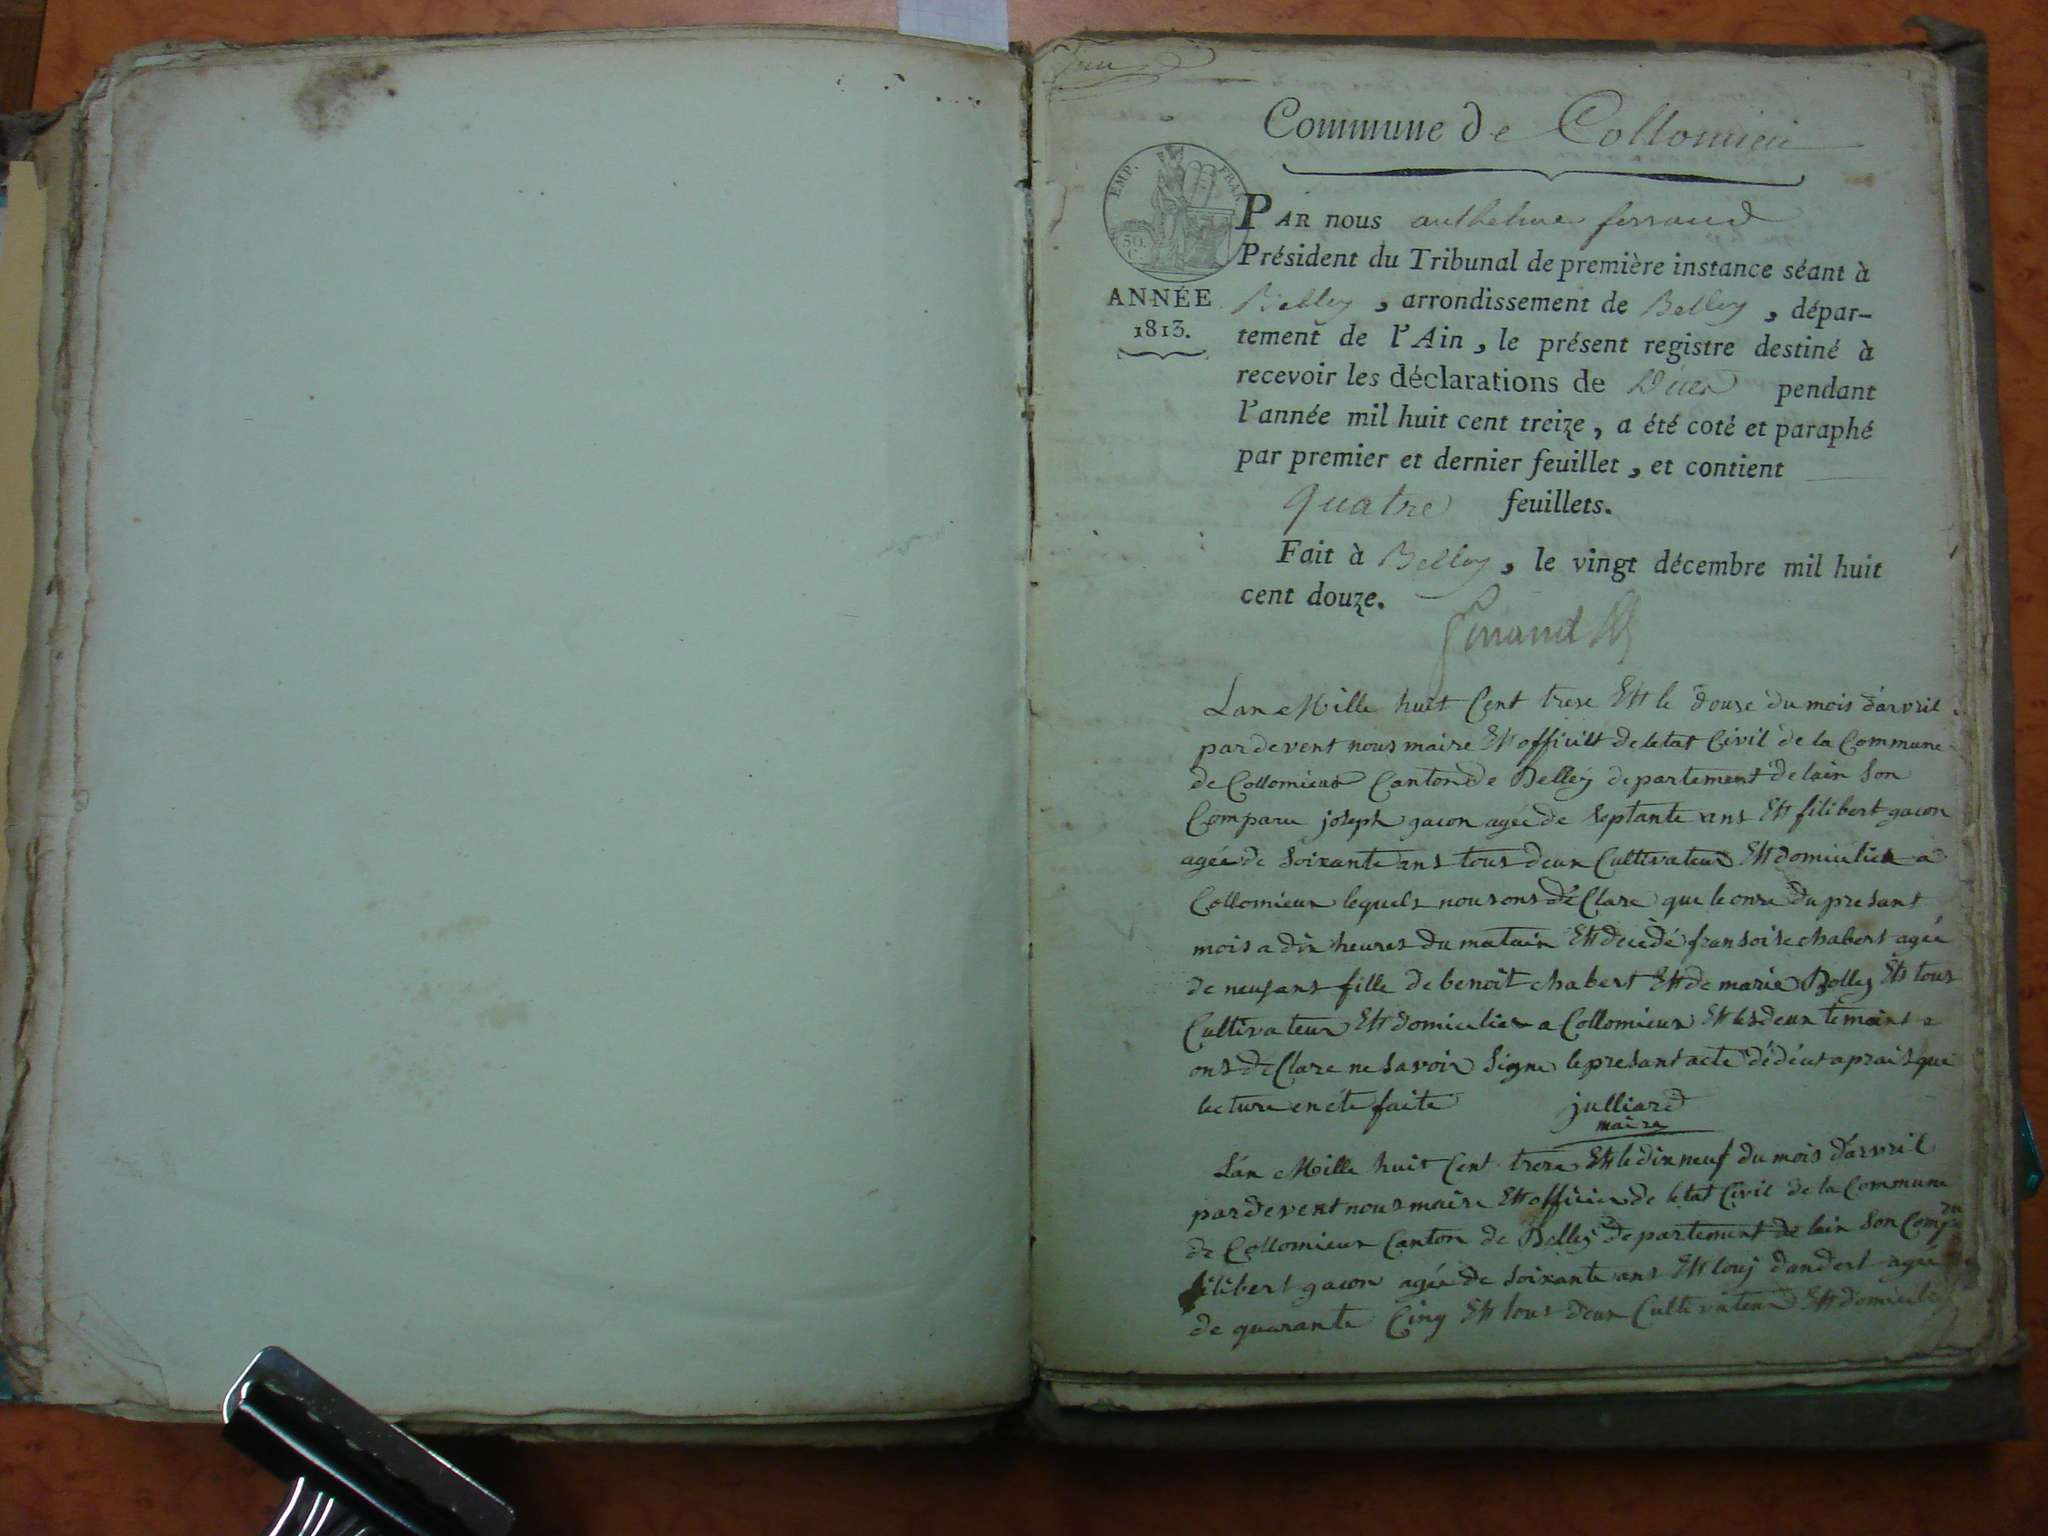 Commune de Collomieu
EMP. FRAN.
50. C.
ANNÉE
1813.
PAR nous anthelme ferrand
Président du Tribunal de première instance séant à
Belley, arrondissement de Belley, dépar-
tement de l'Ain, le présent registre destiné à
recevoir les déclarations de Décès pendant
l'année mil huit cent treize, a été coté et paraphé
par premier et dernier feuillet, et contient
quatre feuillets.
Fait à Belley, le vingt décembre mil huit
cent douze.
ferrand
Lan Mille huit Cent trese Ett le douse du mois d'avril
pardevent nous maire Ett officier de letat Civil de la Commune
de Collomieux Canton de Belley departement de lain Son
Comparu joseph gacon agée de septante ans Ett filibert gacon
agée de soixante ans tous deux Cultivateur Ett domicilier a
Collomieux lequels nous ons dé Clare que le onze du presant
mois a dix heures du matain Ett decedé fransoise chabert agée
de neuf ans fille de benoit chabert Ett de marie Bolley Ett tous
Cultivateur Ett domicilier a Collomieux Ett les deux temoins
ons de Clare ne savoir Signe le presant acte dédéces aprais que
lecture en ete faite julliard
maire
Lán Mille huit Cent treze Ett le dix neuf du mois d'avril
pardevent nous maire Ett officier de letat Civil de la Commune
de Collomieux Canton de Belley departement de lain Son Comp
filibert gacon agée de soixante ans Ett louj dandert agée
de quarante Cinq Ett tous deux Cultivateur Ett domicilié